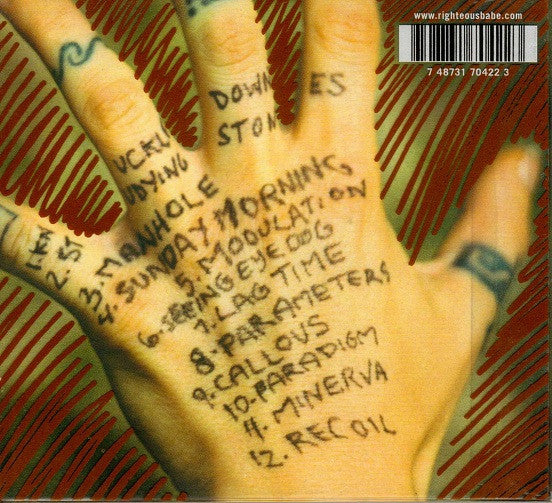 www.righteousbabe.com
7 48731 70422 3
1. KN UCKL DOWN
2. ST UDYING STON ES
3. MANHOLE
4. SUNDAY MORNING
5. MODULATION
6. SEEING EYE DOG
7. LAG TIME
8. PARAMETERS
9. CALLOUS
10. PARADIGM
11. MINERVA
12. RECOIL